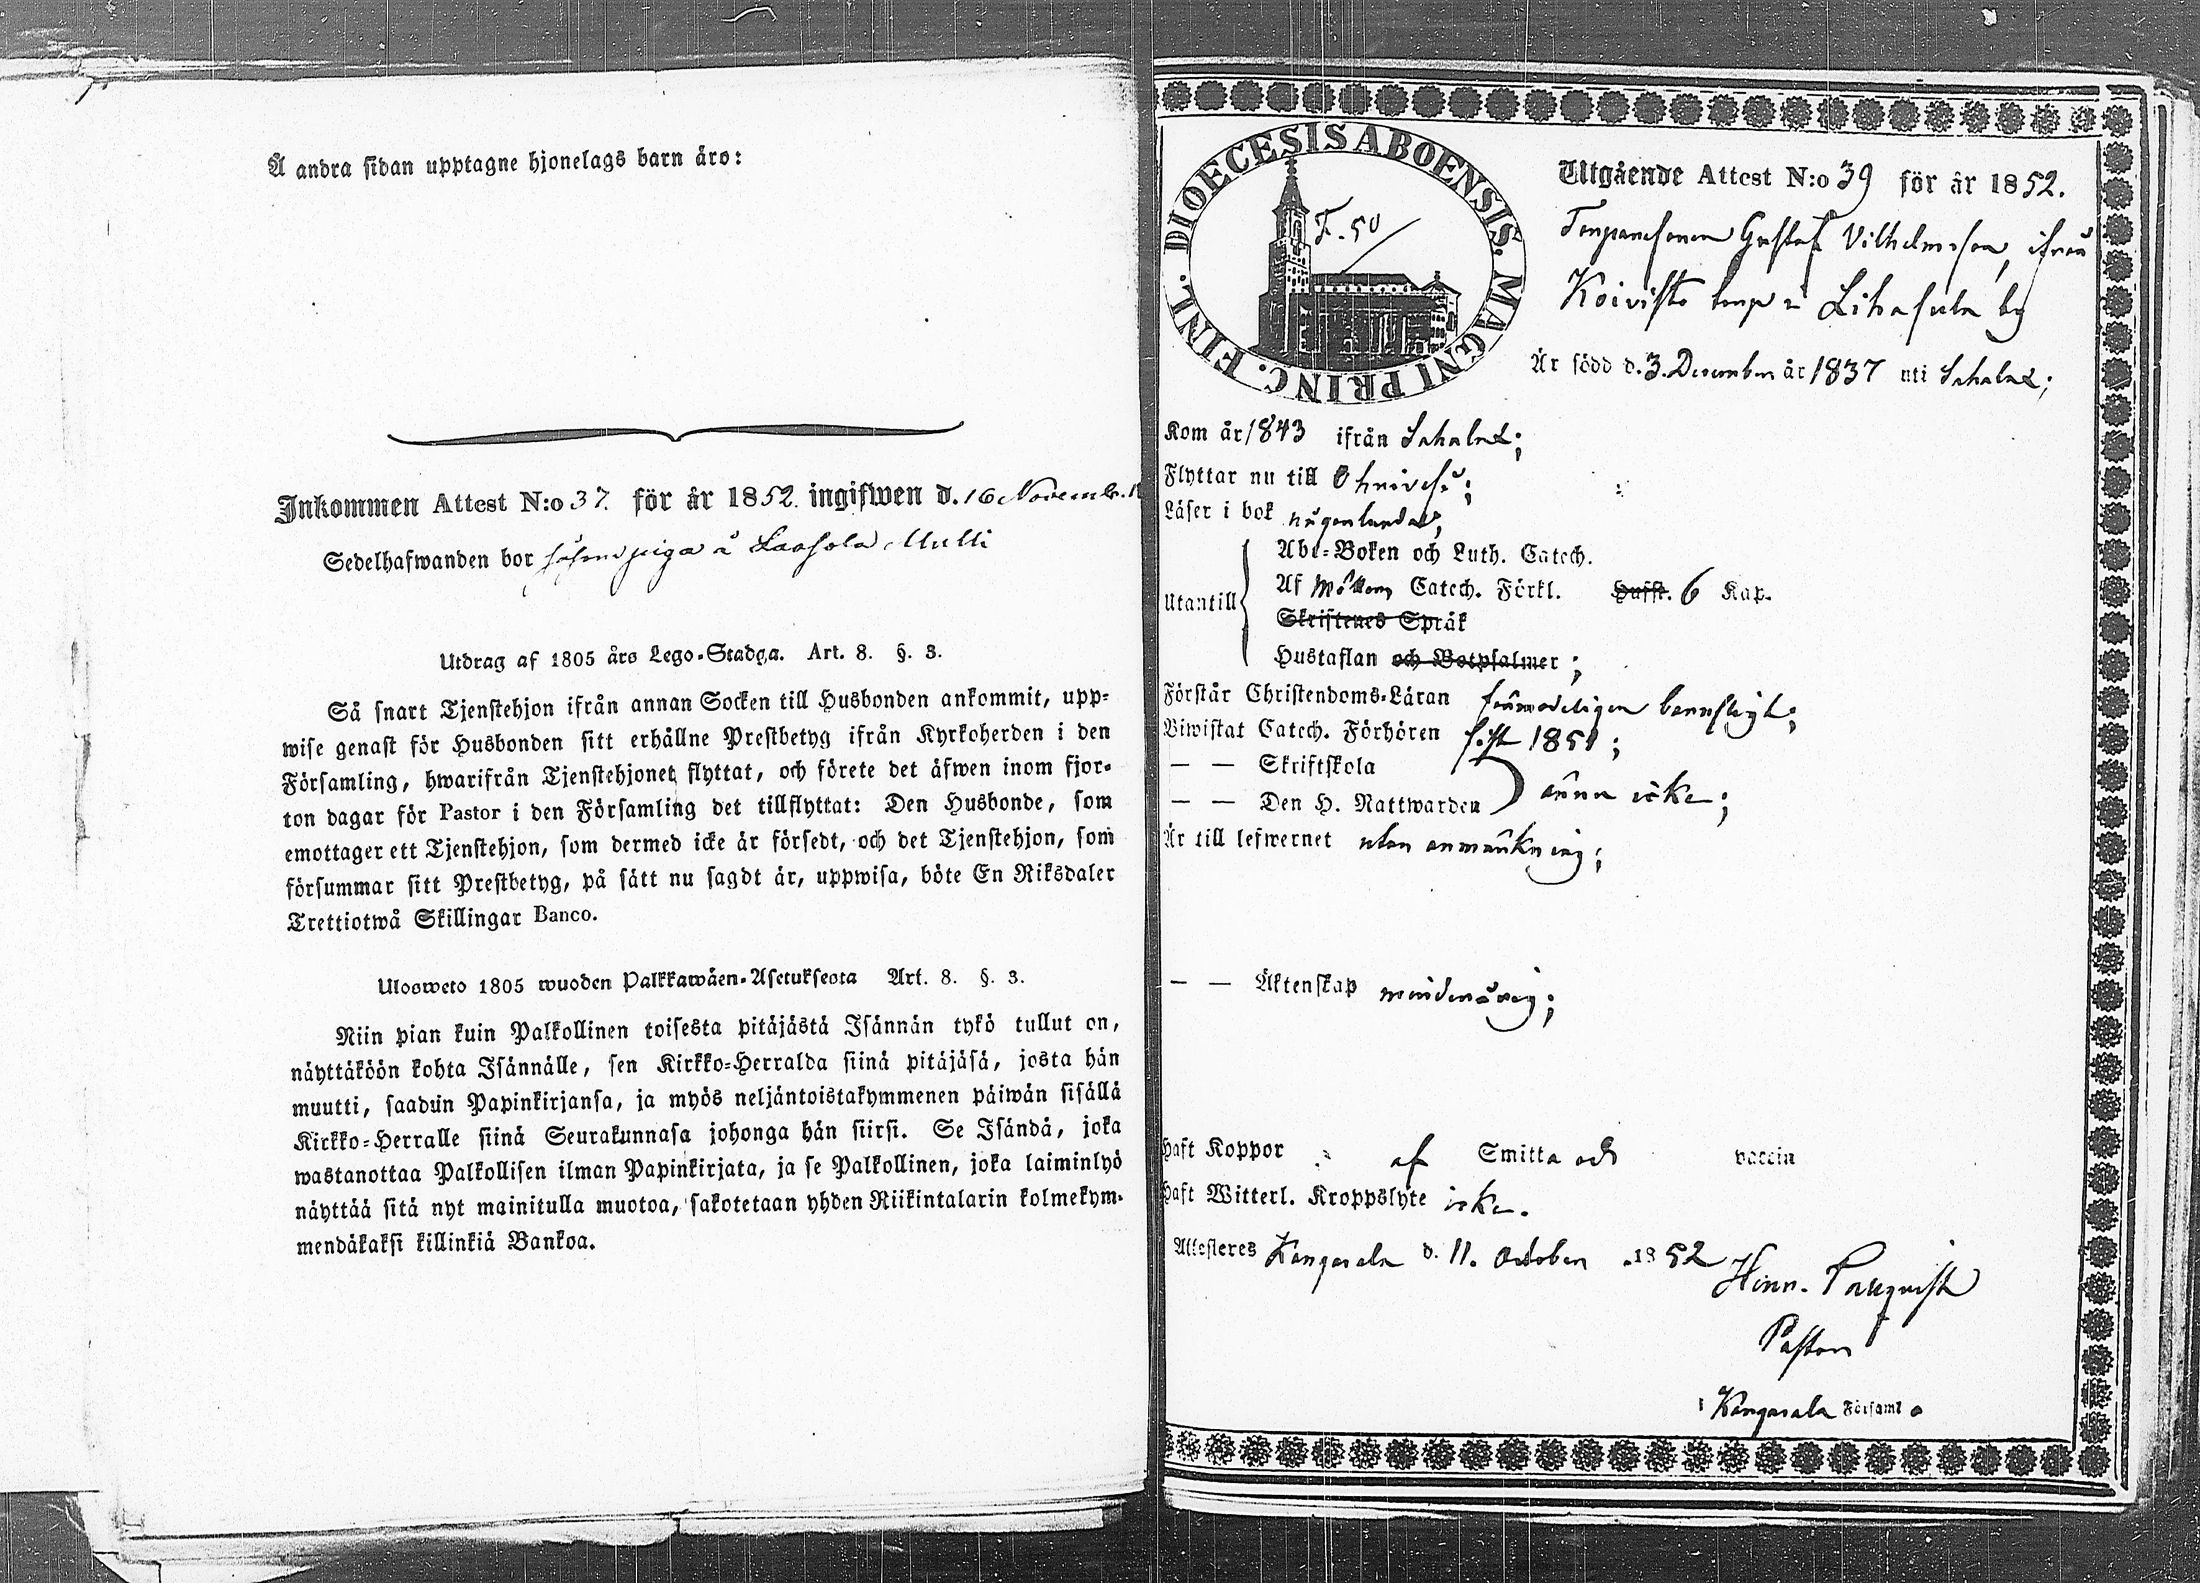 Å andra sidan upptagne hjonelags barn äro:
Inkommen Attest N:o 37. för år 1852. ingifwen d. 16 Novemb.
Sedelhafwanden bor såsom piga å Laasola Mulli
Utdrag af 1805 års Lego-Stadga. Art. 8. §. 3.
Så snart Tjenstehjon ifrån annan Socken till Husbonden ankommit, upp-
wise genast för Husbonden sitt erhållne Prestbetyg ifrån Kyrkoherden i den
Församling, hwarifrån Tjenstehjonet flyttat, och förete det äfwen inom fjor-
ton dagar för Pastor i den Församling det tillflyttat: Den Husbonde, som
emottager ett Tjenstehjon, som dermed icke är försedt, och det Tjenstehjon, som
försummar sitt Prestbetyg, på sätt nu sagdt är, uppwisa, böte En Riksdaler
Trettiotwå Skillingar Banco.
Ulosweto 1805 wuoden Palkkawäen-Asetuksesta Art. 8. §. 3.
Niin pian kuin Palkollinen toisesta pitäjästä Isännän tykö tullut on,
näyttäköön kohta Isännälle, sen Kirkko-Herralda siinä pitäjäsä, josta hän
muutti, saadun Papinkirjansa, ja myös neljäntoistakymmenen päiwän sisällä
Kirkko-Herralle siinä Seurakunnasa johonga hän siirsi. Se Isändä, joka
wastanottaa Palkollisen ilman Papinkirjata, ja se Palkollinen, joka laiminlyö
näyttää sitä nyt mainitulla muotoa, sakotetaan yhden Riikintalarin kolmekym-
mendäkaksi killinkiä Bankoa.
DIOECESIS ABOENSIS. MAGNI PRINC. FINL.
F. 50
Utgående Attest N:o 39 för år 1852.
Torparesonen Gustaf Vilhelmsson, ifrån
Koivisto torp i Lihasula by
Är född d. 3. December år 1837 uti Sahalax;
Kom år 1843 ifrån Sahalax;
Flyttar nu till Orivesi;
Läser i bok någorlunda;
Utantill
Abc-Boken och Luth. Catech.
Af Möllers Catech. Förkl. Hufst. 6 Kap.
Skriftenes Språk
Hustaflan och Botpsalmer;
Förstår Christendoms-Läran förmodeligen benägligt;
Biwistat Catech. Förhören sist 1851;
— — Skriftskola
— — Den H. Nattwarden ännu icke;
Är till lefwernet utan anmärkning;
— — Äktenskap minderårig;
Haft Koppor af Smitta och vaccin
Haft Witterl. Kroppslyte icke.
Attesteres Kangasala d. 11. October 1852
Henr.
Pastor
i Kangasala Församl.